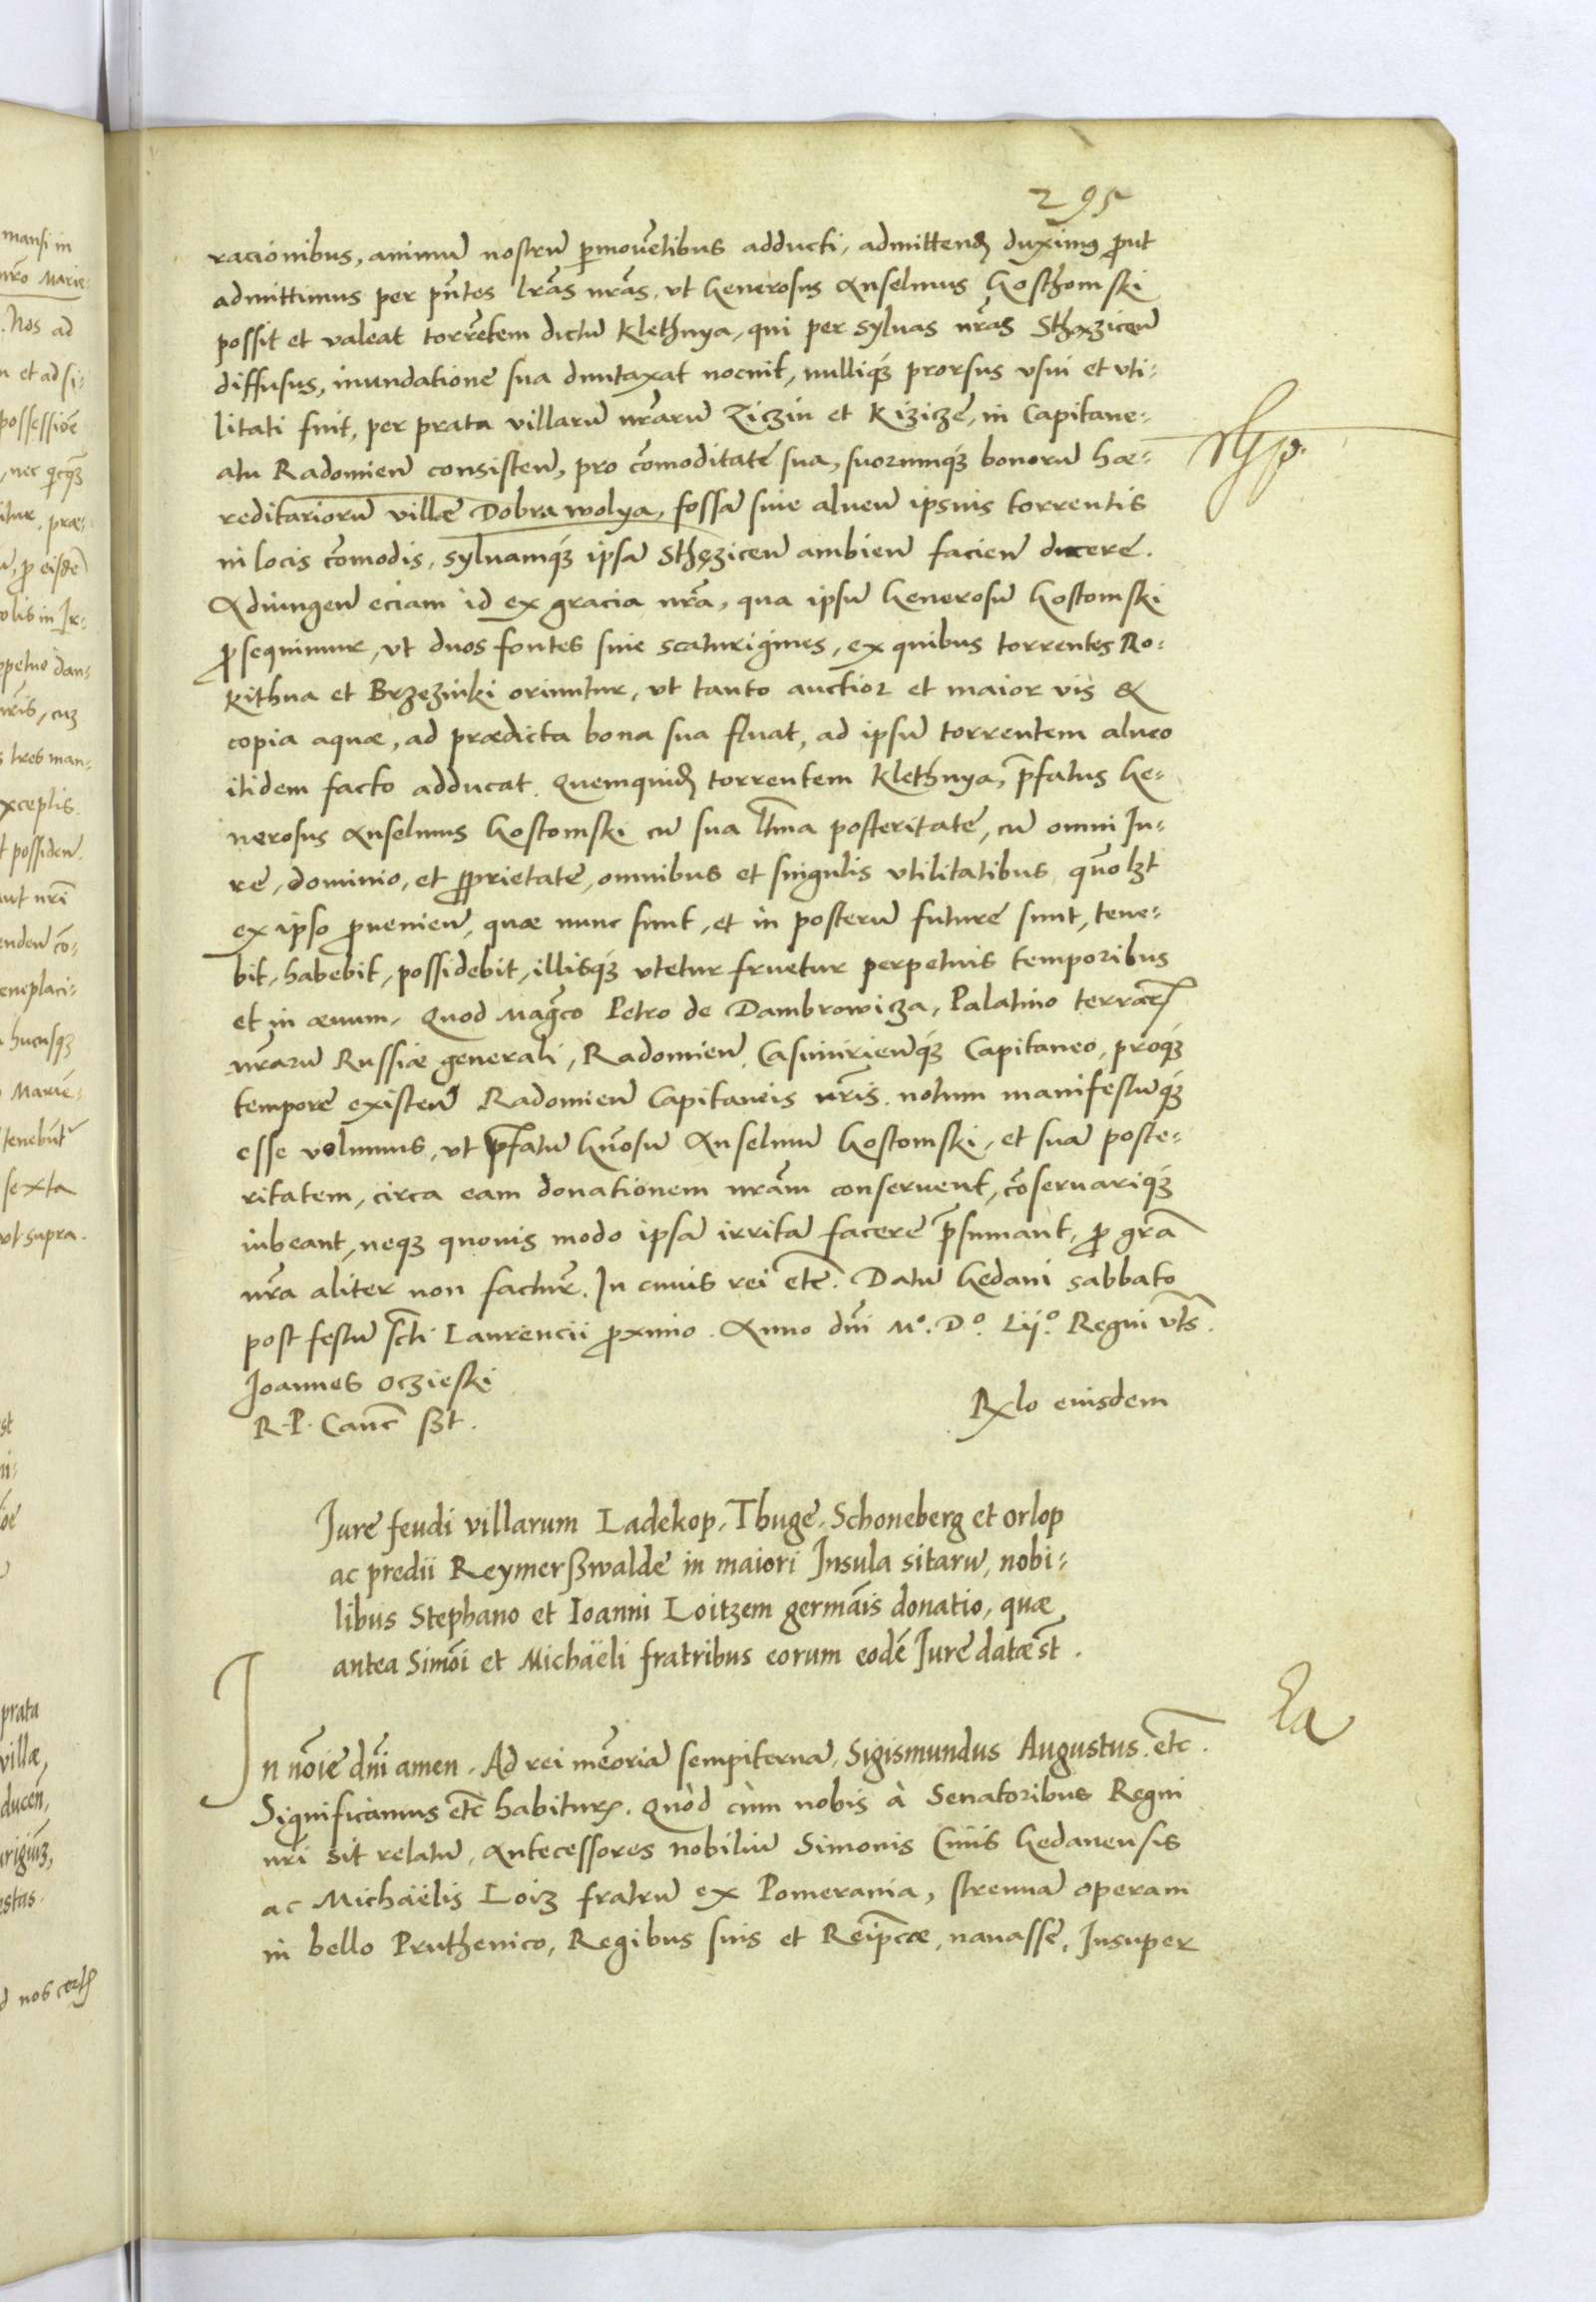 295
racionibus, animũ nostrũ permovẽtibus adducti, admittend duximus prout
admittimus per pñtes lr̃as nr̃as, ut Generosus Anselmus Gosthomski
possit et valeat torrẽtem dictũ Klethnya, qui per syluas nr̃as Sthężiceñ
diffusus, inundatione sua duntaxat nocuit, nulliq́ꝫ prorsus usui et uti-
litati fuit, per prata villarũ nr̃arũ Ziczin et Kiziczẽ, in Capitane-
atu Radomieñ consisteñ, pro cõmoditate sua, suorumq́ꝫ bonorũ hæ-
reditariorũ villæ Dobra wolya, fossã siue alueũ ipsius torrentis
in locis cõmodis, syluamq́ꝫ ipsã Sthęziceñ ambieñ facieñ ducere.
Adiungeñ eciam id ex gracia nr̃a, qua ipsũ Generosũ Gostomski
ꝓsequimur, ut duos fontes siue scaturigines, ex quibus torrentes Ro-
kithna et Brzezinki oriuntur, ut tanto auctior et maior vis &
copia aquæ, ad prædicta bona sua fluat, ad ipsũ torrentem alueo
itidem facto adducat. Quemquid torrentem Klethnya, p̃fatus Ge-
nerosus Anselmus Gostomski cũ sua ltĩma posteritate, cũ omni Ju-
re, dominio, et ꝓprietate, omnibus et singulis utilitatibus quõlꝫt
ex ipso ꝓuenieñ, quæ nunc sunt, et in posterũ future sunt, tene-
bit, habebit, possidebit, illisq́ꝫ utetur fruetur perpetuis temporibus
et in æuum. Quod Magco Petro de Dambrowicza, Palatino terrarꝫ
nr̃arũ Russiæ generali, Radomieñ Casimirieñq́ꝫ Capitaneo, proq́ꝫ
tempore existeñ Radomieñ Capitaneis nr̃is notum manifestũq́ꝫ
esse volumus, ut p̃fatũ Gñosũ Anselmũ Gostomski, et suã poste-
ritatem, circa eam donationem nr̃am conseruent, cõseruariq́ꝫ
iubeant, neqꝫ quouis modo ipsã irritã facere p̃sumant, ꝓ gr̃a
nr̃a aliter non factur̃. In cuius rei etc̃. Datũ Gedani sabbato
post festũ sc̃ti Laurencii ꝓximo. Anno dñi Mº. Dº. Lijº. Regni ut s̃.
Joannes Oczieski
R. P. Canc̃ sst.
Rlo eiusdem
Jure feudi villarum Ladekop, Thuge, Schoneberg et Orlop
ac predii Reymerßwalde in maiori Insula sitarũ, nobi-
libus Stephano et Ioanni Loitzem germãis donatio, quæ
antea Simõi et Michaëli fratribus eorum eodẽ Jure data est.
Ea
In nõie dñi amen. Ad rei mẽoriã sempiternã, Sigismundus Augustus etc̃.
Significamus etc̃ habiturꝫ. Quòd cùm nobis à Senatoribus Regni
nr̃i sit relatũ, Antecessores nobiliũ Simonis Ciuis Gedanensis
ac Michaëlis Loiz fratrũ ex Pomerania, strenuã operam
in bello Pruthenico, Regibus suis et Reipcæ, nauasse, Insuper